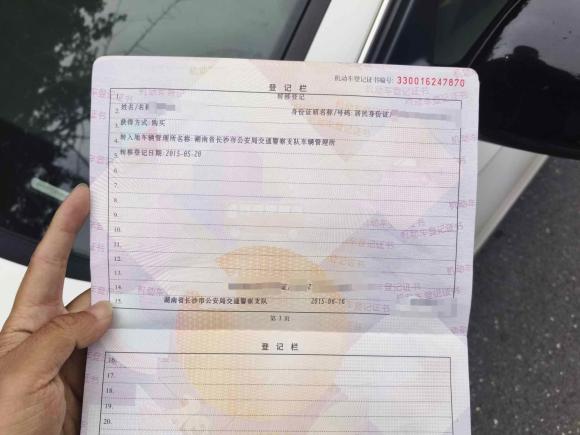 机动车登记证书编号: 330016247870
登 记 栏
转移登记
1.
2. 姓名/名称 身份证明名称/号码:居民身份证/
3. 获得方式:购买
4. 转入地车辆管理所名称:湖南省长沙市公安局交通警察支队车辆管理所
5. 转移登记日期:2015-05-20
6.
7.
8.
9.
10.
11.
12.
13.
14.
15. 湖南省长沙市公安局交通警察支队 2015-06-16
第 3 页
登 记 栏
16.
17.
18.
19.
20.